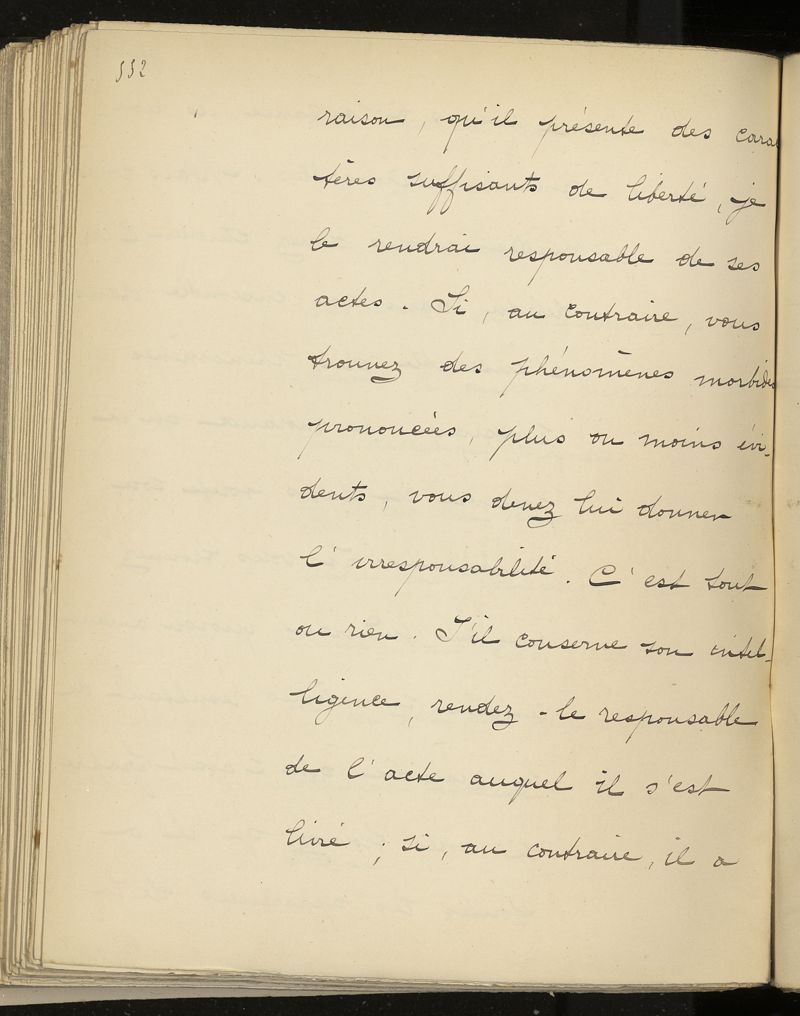 552
raison, qu'il présente des carac
tères suffisants de liberté, je
le rendrai responsable de ses
actes. Si, au contraire, vous
trouvez des phénomènes morbides
prononcées, plus ou moins évi-
dents, vous devez lui donner
l'irresponsabilité. C'est tout
ou rien. S'il conserve son intel-
ligence, rendez-le responsable
de l'acte auquel il s'est
livré ; si, au contraire, il a